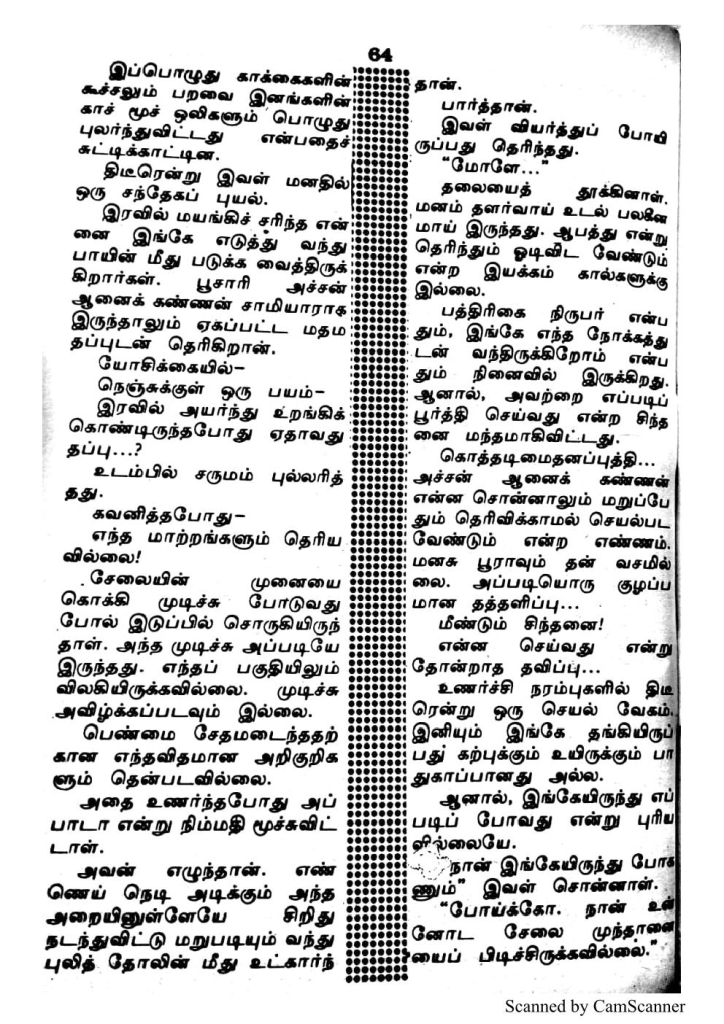 64
இப்பொழுது காக்கைகளின்
கூச்சலும் பறவை இனங்களின்
காச் மூச் ஒலிகளும் பொழுது
புலர்ந்துவிட்டது என்பதைச்
சுட்டிக்காட்டின.
திடீரென்று இவள் மனதில்
ஒரு சந்தேகப் புயல்.
இரவில் மயங்கிச் சரிந்த என்
னை இங்கே எடுத்து வந்து
பாயின் மீது படுக்க வைத்திருக்
கிறார்கள். பூசாரி அச்சன்
ஆனைக் கண்ணன் சாமியாராக
இருந்தாலும் ஏகப்பட்ட மதம
தப்புடன் தெரிகிறான்.
யோசிக்கையில்-
நெஞ்சுக்குள் ஒரு பயம்-
இரவில் அயர்ந்து உறங்கிக்
கொண்டிருந்தபோது ஏதாவது
தப்பு...?
உடம்பில் சருமம் புல்லரித்
தது.
கவனித்தபோது-
எந்த மாற்றங்களும் தெரிய
வில்லை!
சேலையின் முனையை
கொக்கி முடிச்சு போடுவது
போல் இடுப்பில் சொருகியிருந்
தாள். அந்த முடிச்சு அப்படியே
இருந்தது. எந்தப் பகுதியிலும்
விலகியிருக்கவில்லை. முடிச்சு
அவிழ்க்கப்படவும் இல்லை.
பெண்மை சேதமடைந்ததற்
கான எந்தவிதமான அறிகுறிக
ளும் தென்படவில்லை.
அதை உணர்ந்தபோது அப்
பாடா என்று நிம்மதி மூச்சுவிட்
டாள்.
அவன் எழுந்தான். எண்
ணெய் நெடி அடிக்கும் அந்த
அறையினுள்ளேயே சிறிது
நடந்துவிட்டு மறுபடியும் வந்து
புலித் தோலின் மீது உட்கார்ந்
தான்.
பார்த்தான்.
இவள் வியர்த்துப் போயி
ருப்பது தெரிந்தது.
"மோளே..."
தலையைத் தூக்கினாள்.
மனம் தளர்வாய் உடல் பலகீன
மாய் இருந்தது. ஆபத்து என்று
தெரிந்தும் ஓடிவிட வேண்டும்
என்ற இயக்கம் கால்களுக்கு
இல்லை.
பத்திரிகை நிருபர் என்ப
தும், இங்கே எந்த நோக்கத்து
டன் வந்திருக்கிறோம் என்ப
தும் நினைவில் இருக்கிறது.
ஆனால், அவற்றை எப்படிப்
பூர்த்தி செய்வது என்ற சிந்த
னை மந்தமாகிவிட்டது.
கொத்தடிமைதனப்புத்தி...
அச்சன் ஆனைக் கண்ணன்
என்ன சொன்னாலும் மறுப்பே
தும் தெரிவிக்காமல் செயல்பட
வேண்டும் என்ற எண்ணம்.
மனசு பூராவும் தன் வசமில்
லை. அப்படியொரு குழப்ப
மான தத்தளிப்பு...
மீண்டும் சிந்தனை!
என்ன செய்வது என்று
தோன்றாத தவிப்பு...
உணர்ச்சி நரம்புகளில் திடீ
ரென்று ஒரு செயல் வேகம்.
இனியும் இங்கே தங்கியிருப்
பது கற்புக்கும் உயிருக்கும் பா
துகாப்பானது அல்ல.
ஆனால், இங்கேயிருந்து எப்
படிப் போவது என்று புரிய
வில்லையே.
நான் இங்கேயிருந்து போக
ணும்" இவள் சொன்னாள்.
"போய்க்கோ. நான் உன்
னோட சேலை முந்தானை
யைப் பிடிச்சிருக்கவில்லை."
Scanned by CamScanner